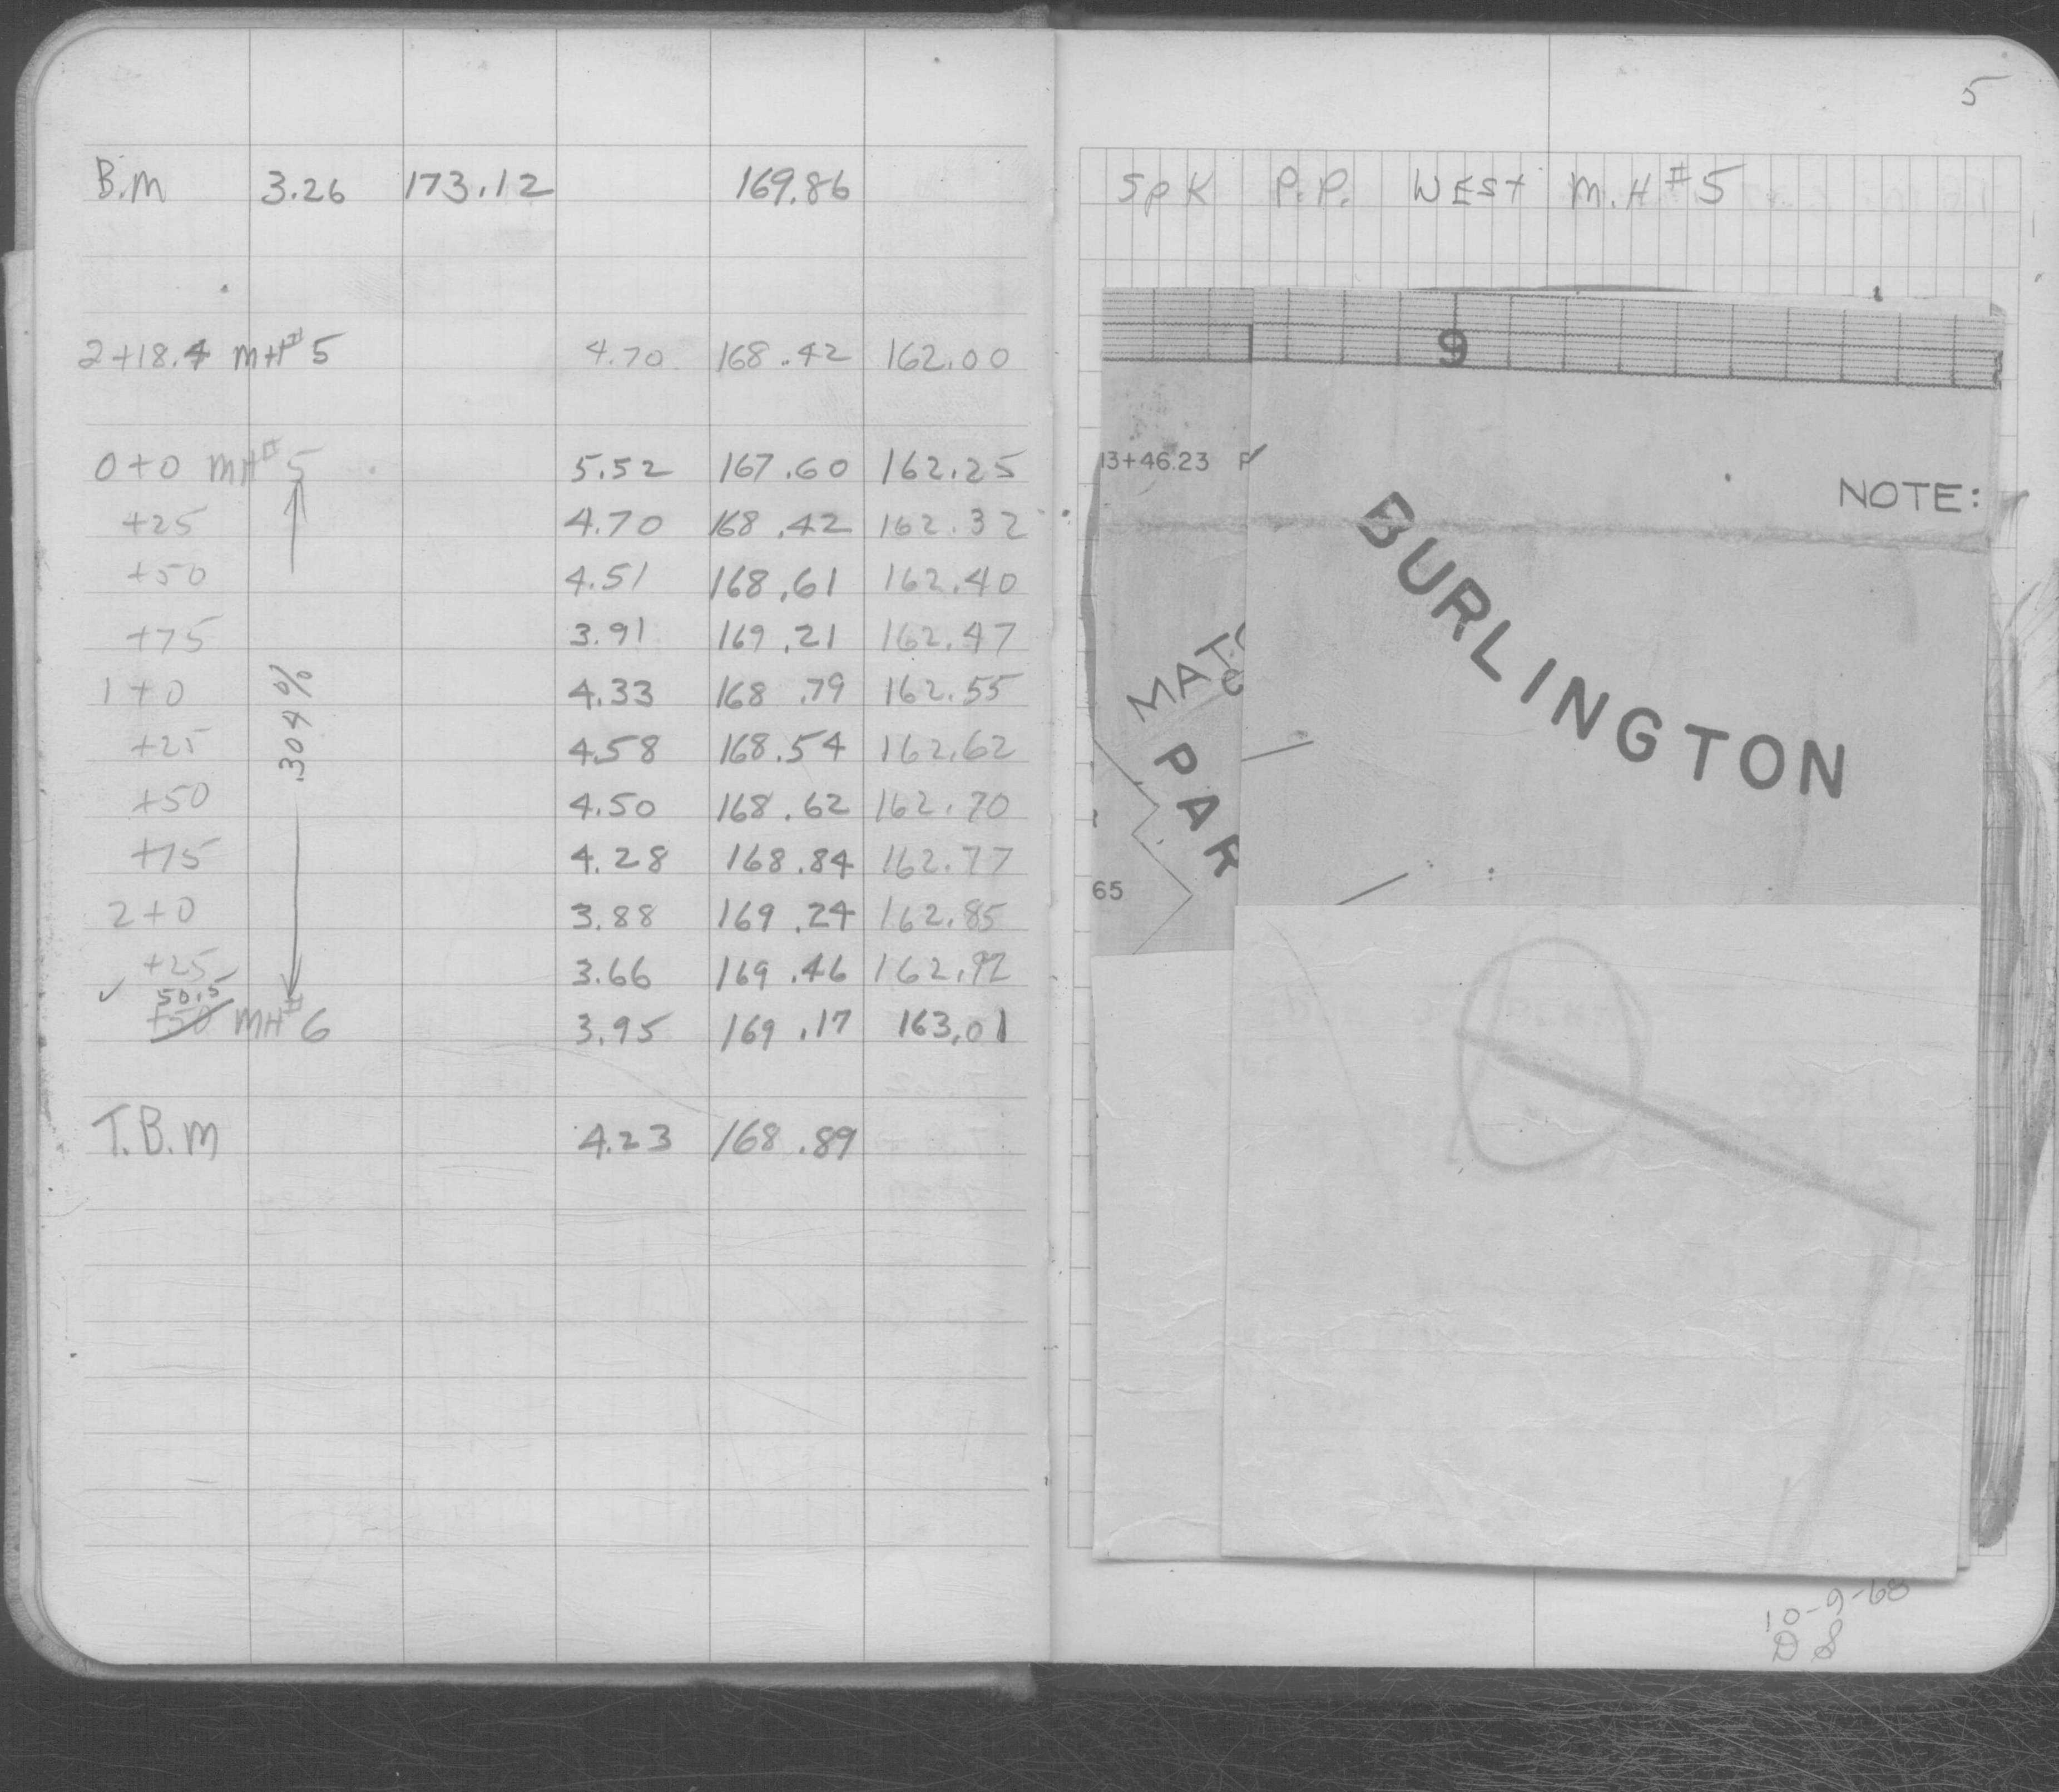 B.M 3.26 173.12 169.86
2+18.4 MH#5 4.70 168.42 162.00
0+0 MH#5 5.52 167.60 162.25
+25 4.70 168.42 162.32
+50 4.51 168.61 162.40
+75 3.91 169.21 162.47
1+0 4.33 168.79 162.55
+25 4.58 168.54 162.62
+50 4.50 168.62 162.70
+75 4.28 168.84 162.77
2+0 3.88 169.24 162.85
+25 3.66 169.46 162.92
50.5
+50 MH#6 3.95 169.17 163.01
.304%
T.B.M 4.23 168.89
5
SPK P.P. WEST M.H #5
9
13+46.23 P
NOTE:
BURLINGTON
MAT
PAR
65
10-9-68
DS